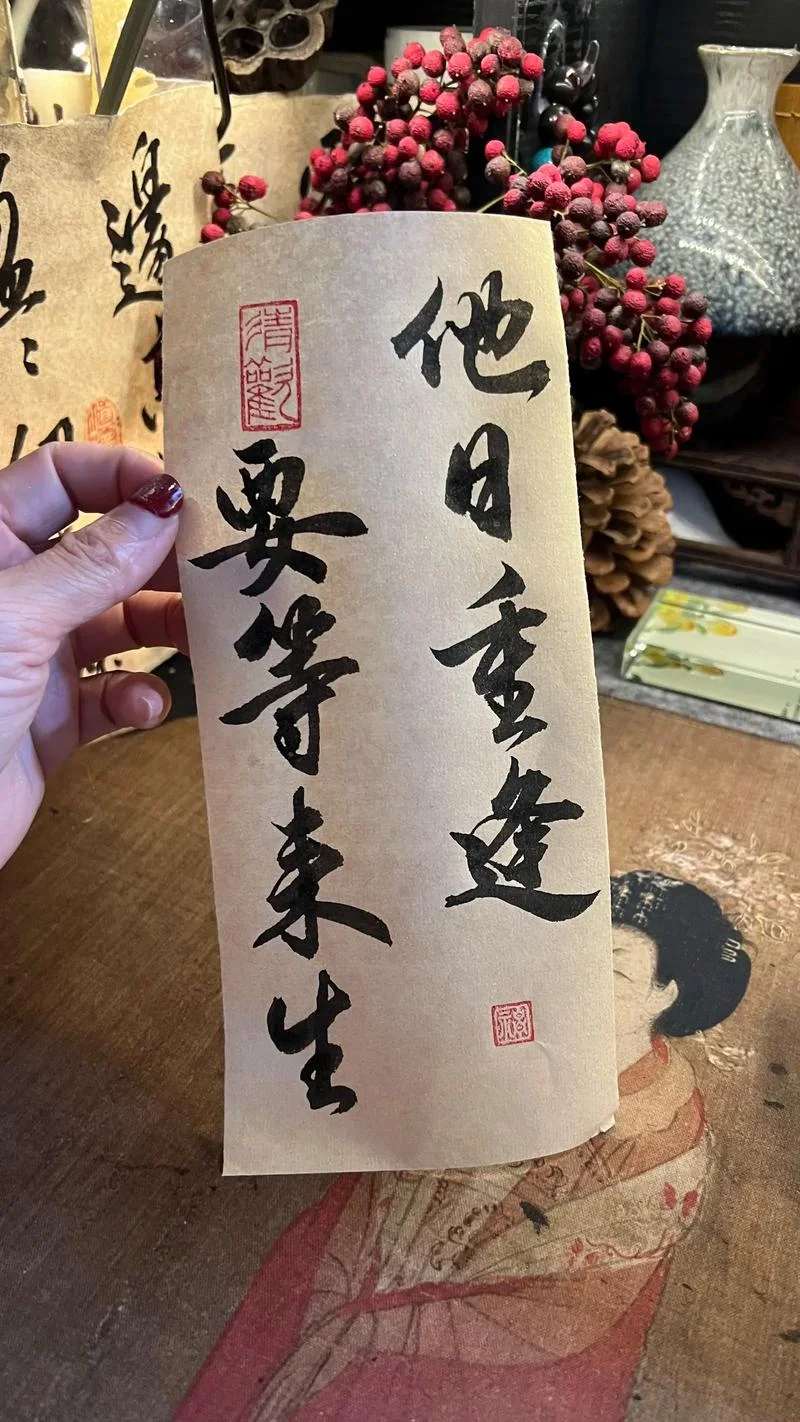 他日重逢
要等来生
清欢
邊